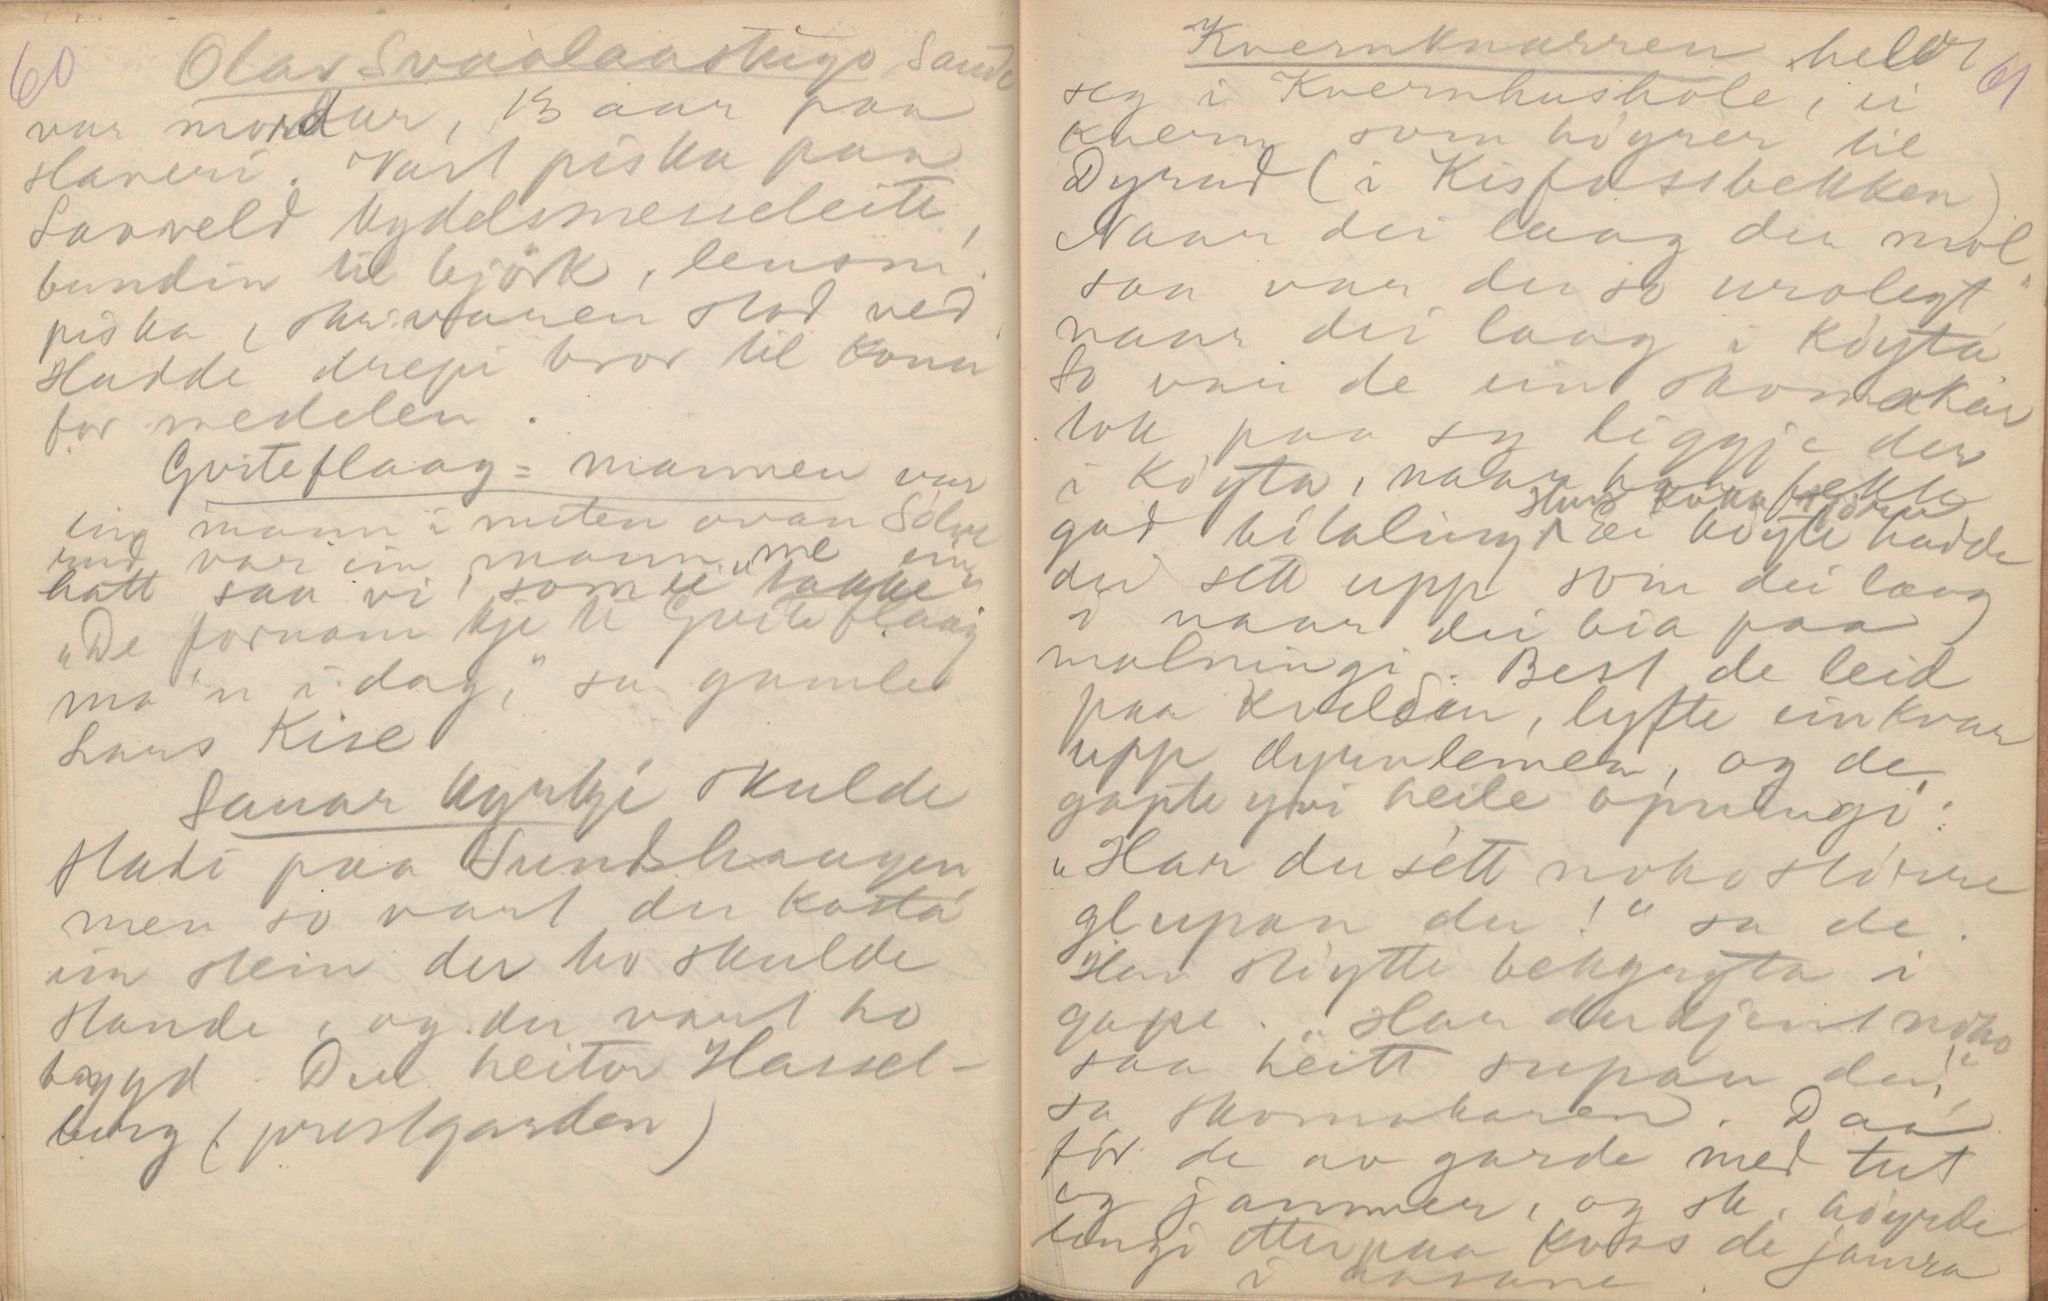 60
Olav Svaalaastugo Sande
var mordar, 13 aar paa
slaveri. Vart piska paa
Sauveld kyddelsmesseleite,
bundin til björk, lensm.
piska, skrivaren stod ved.
Hadde drepi bror til konu
for medelen.
Gviteflaag-mannen var
ein mann i nuten ovan Sölve
rud var ein mann me ein
hatt saa vi, som ei bakke
"De fornam kje ti Gviteflaag
ma'n i dag," sa gamle
Lars Kise
Sauar kyrkje skulde
stadt paa Sundshaugen
men so vart der kasta
ein stein der ho skulde
stande, og der vart ho
bygd. Der heiter Hassel-
berg (prestgarden)
61
Kvernknurren heldt
seg i Kvernhushole, ei
kvern som höyrer til
Dyrud (i Kisfossbekken)
Naar dei laag der mol
saa var der so urolegt
naar dei laag i köyta
So var de ein skomakar
tok paa seg liggje der
i köyta, naar han fekk
god bitaling. Ei köyte hadde
dei sett upp som dei laag
i naar dei bia paa
malningi. Best de leid
paa kvelden, lyfte einkvar
upp dyrolemen, og de
gapte yvi heile opningi:
"Har du sétt noko störrre
glupan du!" sa de.
Han stöytte bekgryta i
gape. "Har du kjent noko
saa heitt supan du!"
sa skomakaren. Daa
för de av garde med tut
og jammer, og sk. höyrde
lengi etterpaa koss de jamra
i aasane.